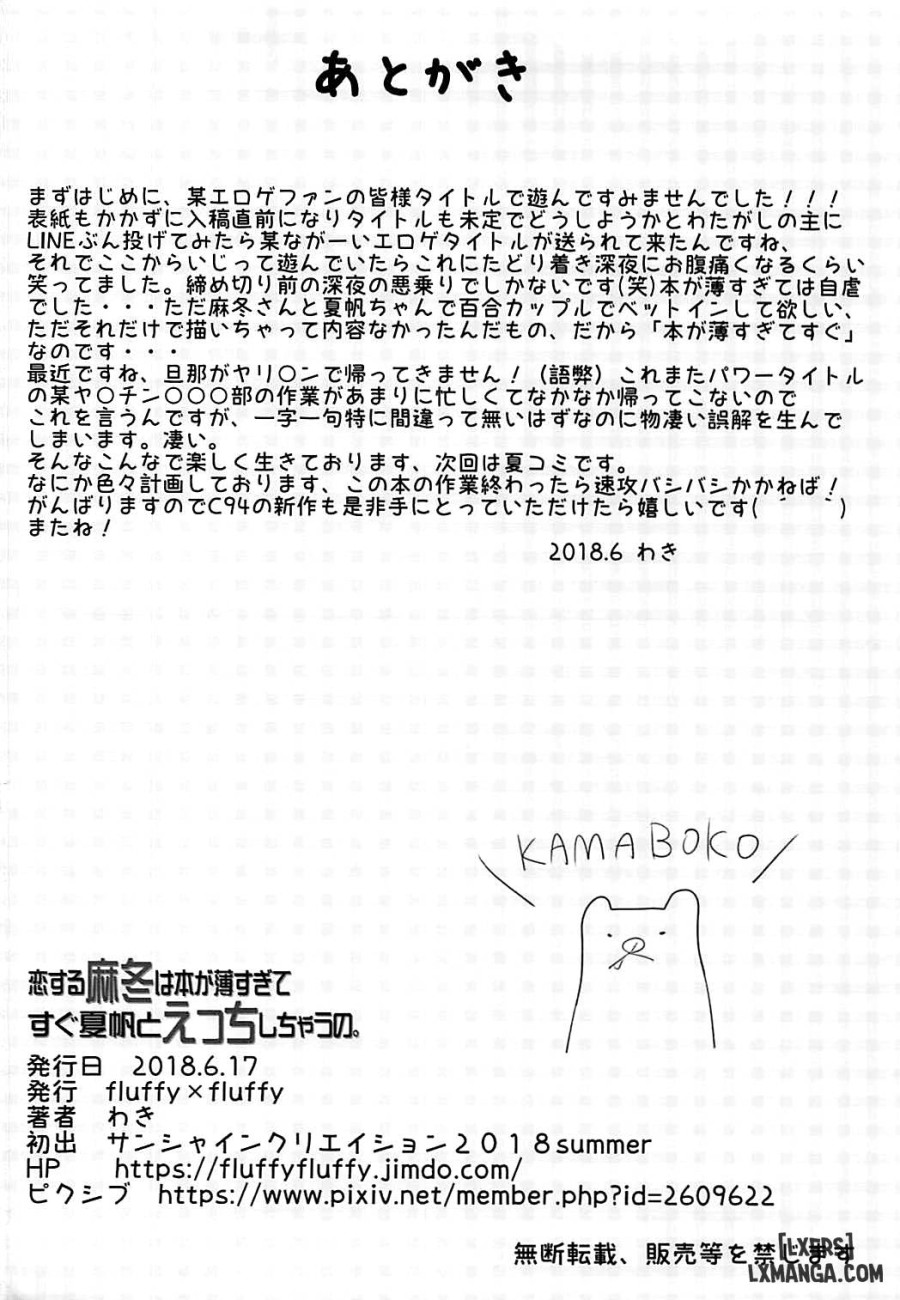 あとがき
まずはじめに、某エロゲファンの皆様タイトルで遊んですみませんでした！！！
表紙もかかずに入稿直前になりタイトルも未定でどうしようかとわたがしの主に
LINEぶん投げてみたら某ながーいエロゲタイトルが送られて来たんですね、
それでここからいじって遊んでいたらこれにたどり着き深夜にお腹痛くなるくらい
笑ってました。締め切り前の深夜の悪乗りでしかないです(笑)本が薄すぎては自虐
でした・・・ただ麻冬さんと夏帆ちゃんで百合カップルでベットインして欲しい、
ただそれだけで描いちゃって内容なかったんだもの、だから「本が薄すぎてすぐ」
なのです・・・
最近ですね、旦那がヤリ○ンで帰ってきません！（語弊）これまたパワータイトル
の某ヤ○チン○○○部の作業があまりに忙しくてなかなか帰ってこないので
これを言うんですが、一字一句特に間違って無いはずなのに物凄い誤解を生んで
しまいます。凄い。
そんなこんなで楽しく生きております、次回は夏コミです。
なにか色々計画しております、この本の作業終わったら速攻バシバシかかねば！
がんばりますのでC94の新作も是非手にとっていただけたら嬉しいです(｀　´　)
またね！
2018.6 わき
\ KAMABOKO /
恋する麻冬は本が薄すぎて
すぐ夏帆とえっちしちゃうの。
発行日　2018.6.17
発行　fluffy×fluffy
著者　わき
初出　サンシャインクリエイション２０１８summer
HP　https://fluffyfluffy.jimdo.com/
ピクシブ　https://www.pixiv.net/member.php?id=2609622
無断転載、販売等を禁じます
[LXERS]
LXMANGA.COM